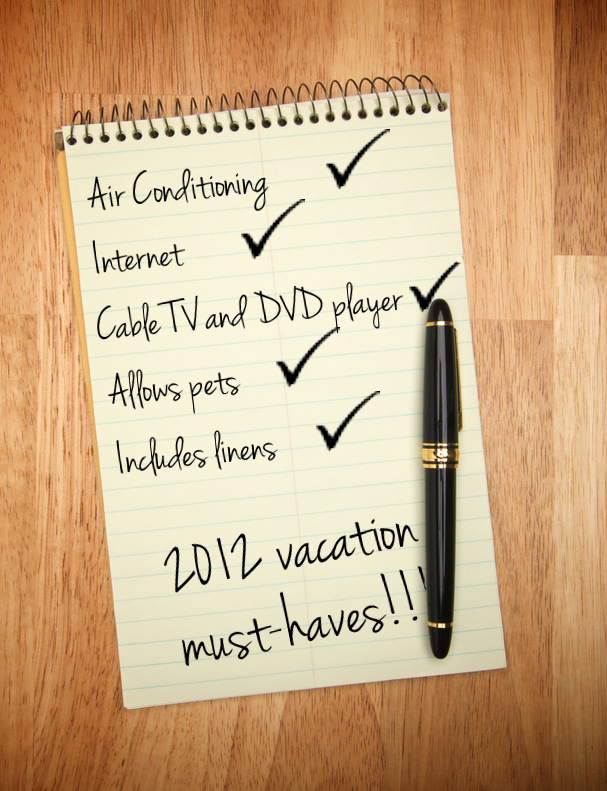 Air Conditioning
Internet
Cable TV and DVD player
Allows pets
Includes linens
2012 vacation
must-haves!!!